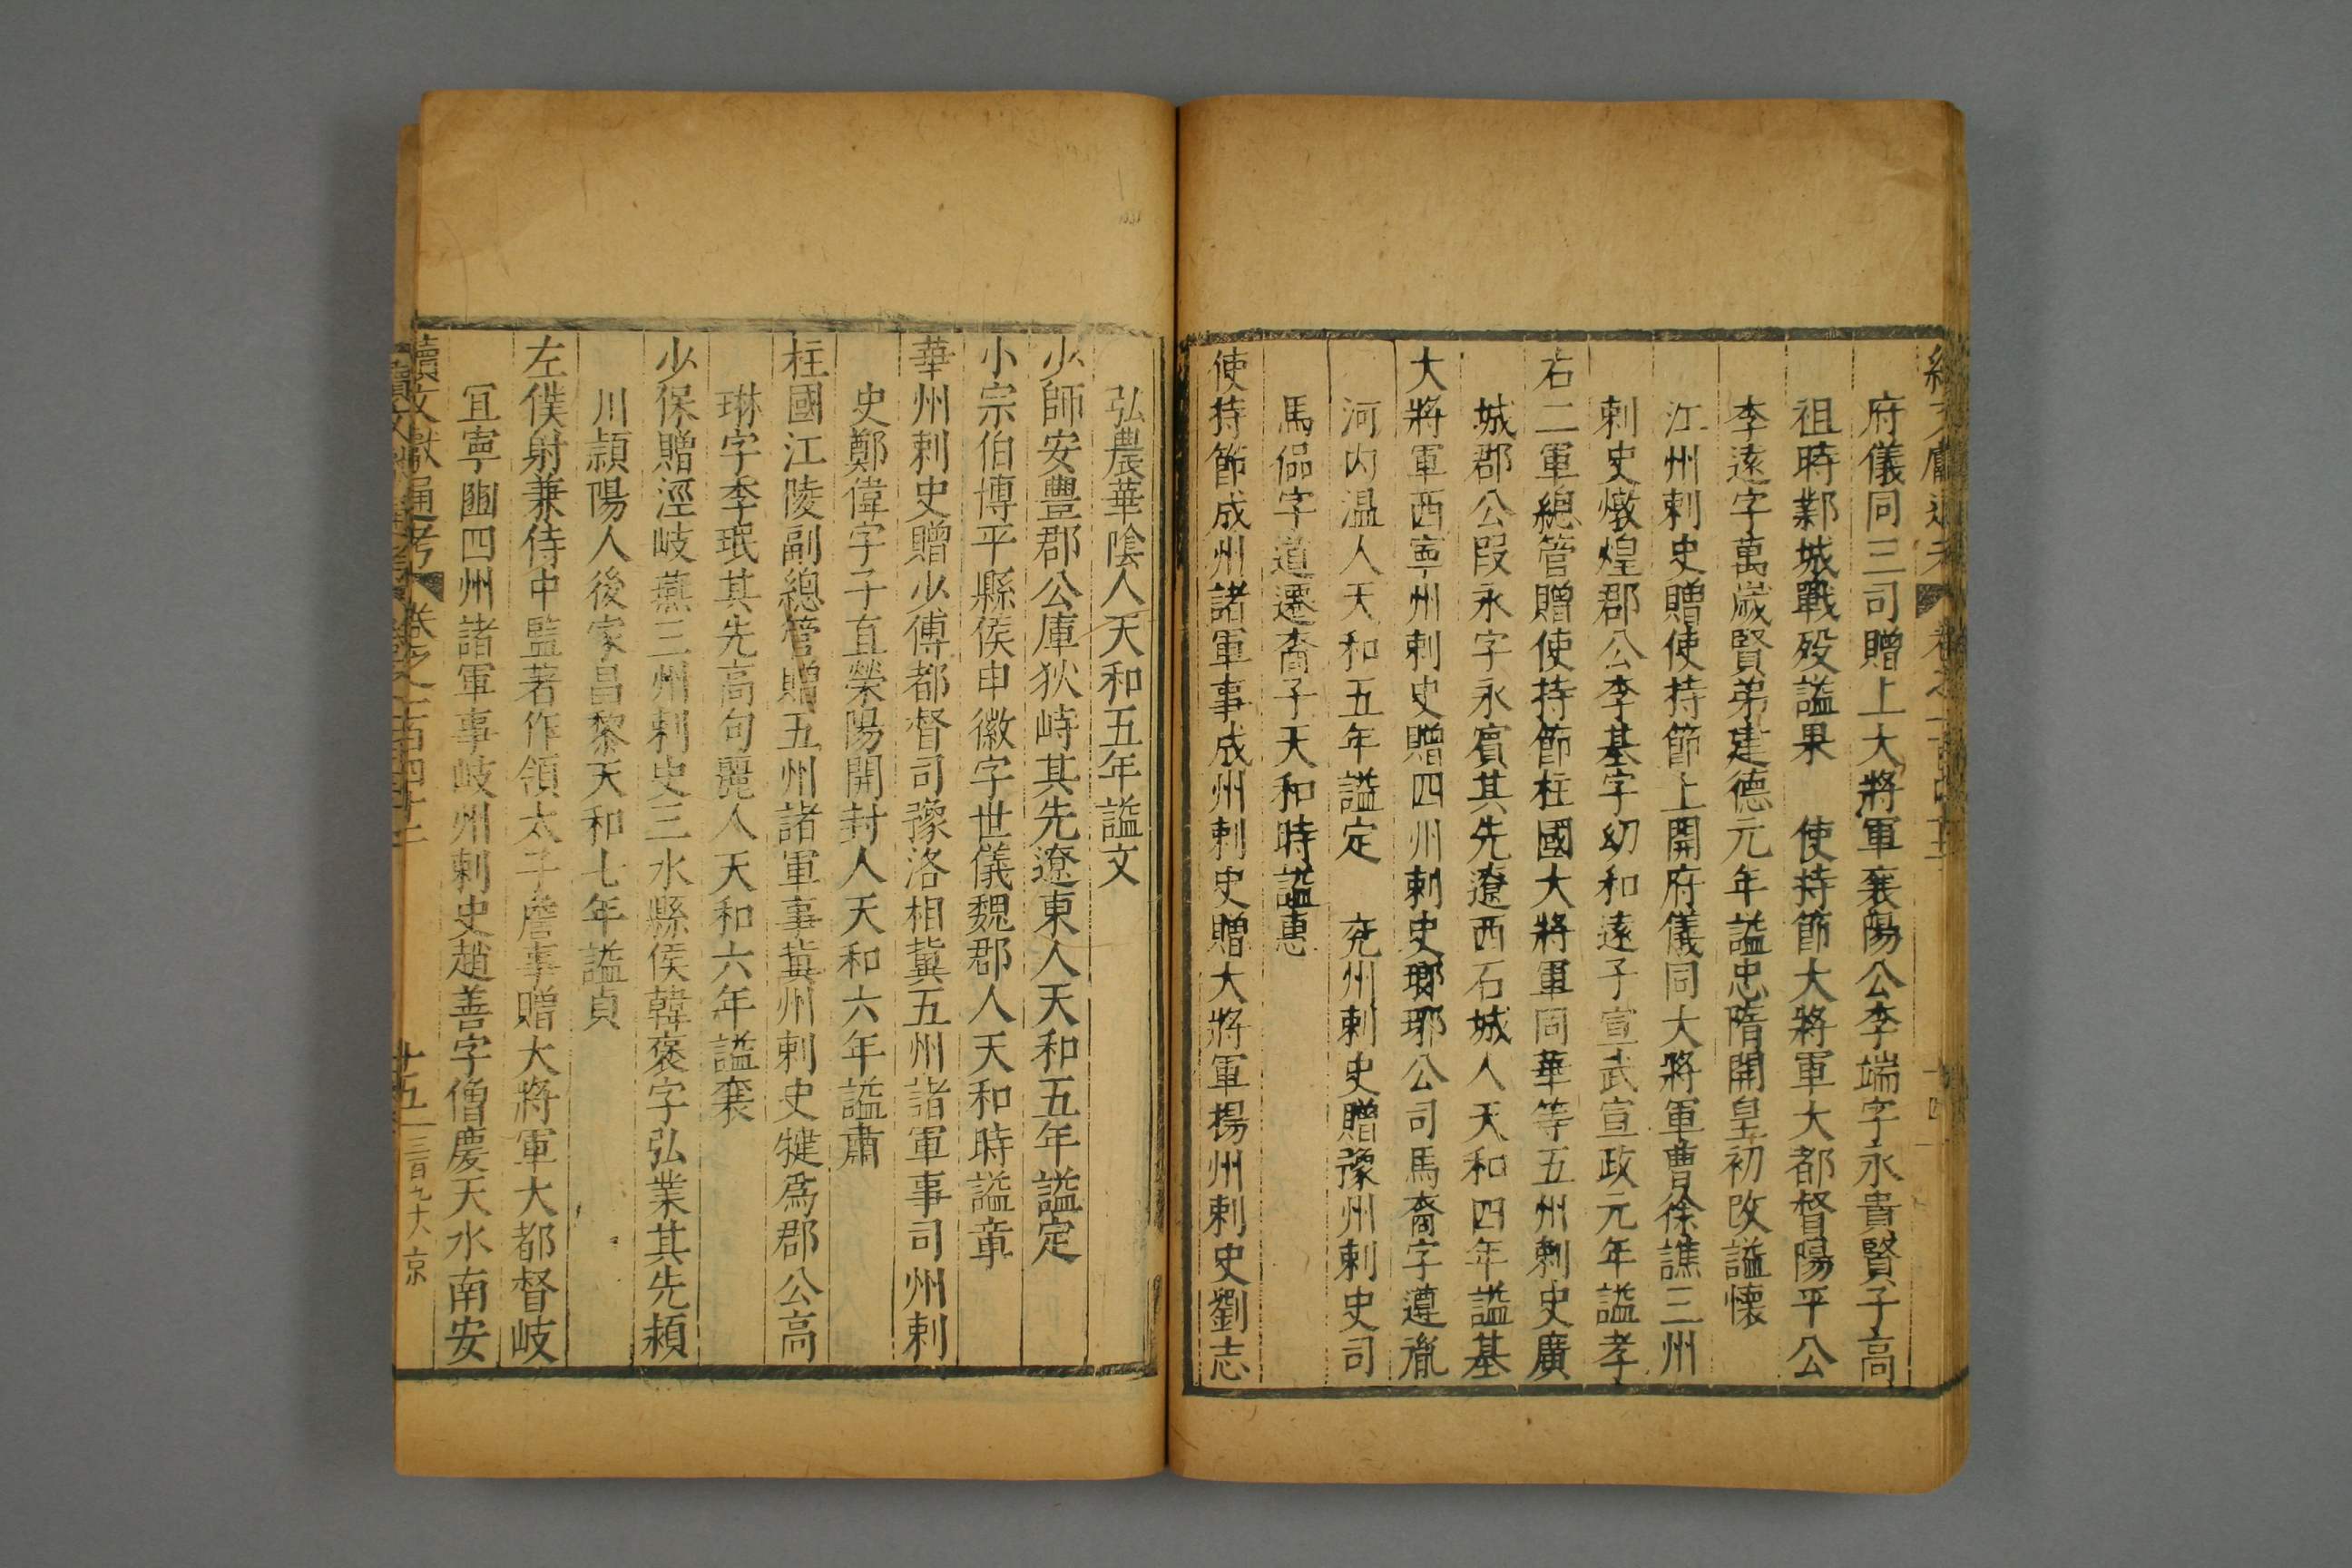 府儀同三司贈上大將軍襄陽公李端字永貴賢子高
祖時鄴城戰殁謚果 使持節大將軍大都督陽平公
李遠字萬歲賢弟建德元年謚忠隋開皇初改謚懷
江州刺史贈使持節上開府儀同大將軍曹徐譙三州
刺史燉煌郡公李基字幼和遠子宣武宣政元年謚孝
右二軍總管贈使持節柱國大將軍同華等五州刺史廣
城郡公段永字永賓其先遼西石城人天和四年謚基
大將軍西寧州刺史贈四州刺史瑯琊公司馬裔字遵胤
河内温人天和五年謚定 兖州刺史贈豫州刺史司
馬偘字道遷裔子天和時謚惠
使持節成州諸軍事成州刺史贈大將軍揚州刺史劉志
弘農華陰人天和五年謚文
少師安豐郡公庫狄峙其先遼東人天和五年謚定
小宗伯博平縣侯申徽字世儀魏郡人天和時謚章
華州刺史贈少傅都督司豫洛相冀五州諸軍事司州刺
史鄭偉字子直榮陽開封人天和六年謚肅
柱國江陵副總管贈五州諸軍事冀州刺史犍爲郡公高
琳字季珉其先高句麗人天和六年謚襄
少保贈涇岐燕三州刺史三水縣侯韓褒字弘業其先潁
川潁陽人後家昌黎天和七年謚貞
左僕射兼侍中監著作領太子詹事贈大將軍大都督岐
冝寧豳四州諸軍事岐州刺史趙善字僧慶天水南安
續文獻通考 卷之一百四十二 廿五 三百九十六 京